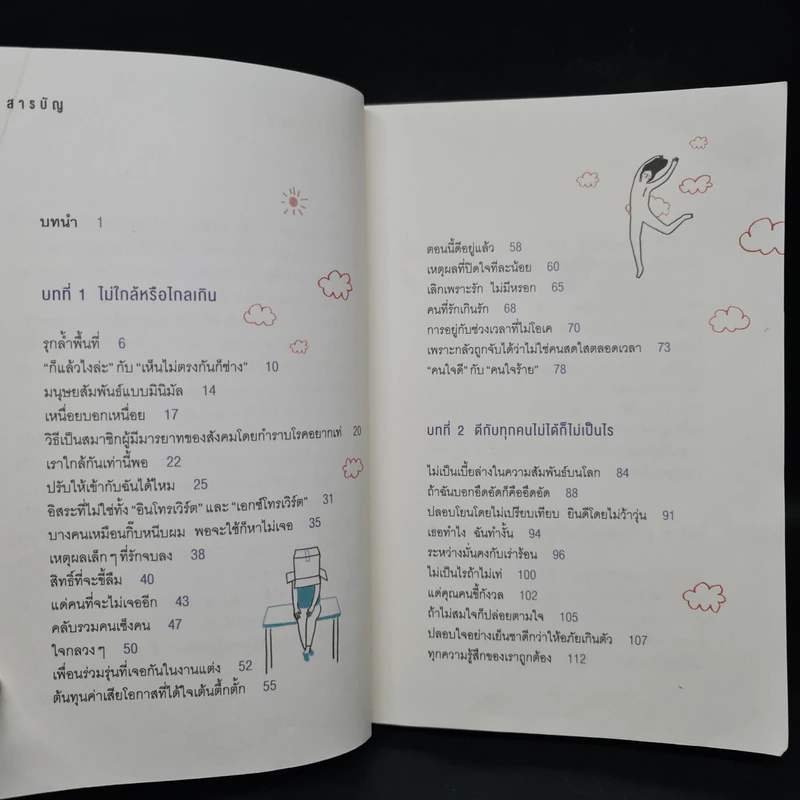 สารบัญ
บทนำ 1
บทที่ 1 ไม่ใกล้หรือไกลเกิน
รุกล้ำพื้นที่ 6
“ก็แล้วไงล่ะ” กับ “เห็นไม่ตรงกันก็ช่าง” 10
มนุษยสัมพันธ์แบบมินิมัล 14
เหนื่อยบอกเหนื่อย 17
วิธีเป็นสมาชิกผู้มีมารยาทของสังคมโดยกำราบโรคอยากเท่ 20
เราใกล้กันเท่านี้พอ 22
ปรับให้เข้ากับฉันได้ไหม 25
อิสระที่ไม่ใช่ทั้ง “อินโทรเวิร์ต” และ “เอกซ์โทรเวิร์ต” 31
บางคนเหมือนกิ๊บหนีบผม พอจะใช้ก็หาไม่เจอ 35
เหตุผลเล็กๆ ที่รักจบลง 38
สิทธิ์ที่จะขี้ลืม 40
แด่คนที่จะไม่เจออีก 43
คลับรวมคนเซ็งคน 47
ใจกลวงๆ 50
เพื่อนร่วมรุ่นที่เจอกันในงานแต่ง 52
ต้นทุนค่าเสียโอกาสที่ได้ใจเต้นตึ้กตั้ก 55
ตอนนี้ดีอยู่แล้ว 58
เหตุผลที่ปิดใจทีละน้อย 60
เลิกเพราะรัก ไม่มีหรอก 65
คนที่รักเกินรัก 68
การอยู่กับช่วงเวลาที่ไม่โอเค 70
เพราะกลัวถูกจับได้ว่าไม่ใช่คนสดใสตลอดเวลา 73
“คนใจดี” กับ “คนใจร้าย” 78
บทที่ 2 ดีกับทุกคนไม่ได้ก็ไม่เป็นไร
ไม่เป็นเบี้ยล่างในความสัมพันธ์บนโลก 84
ถ้าฉันบอกอึดอัดก็คืออึดอัด 88
ปลอบโยนโดยไม่เปรียบเทียบ ยินดีโดยไม่ว้าวุ่น 91
เธอทำไง ฉันทำงั้น 94
ระหว่างมั่นคงกับเร่าร้อน 96
ไม่เป็นไรถ้าไม่เท่ 100
แด่คุณคนขี้กังวล 102
ถ้าไม่สมใจก็ปล่อยตามใจ 105
ปลอบใจอย่างเย็นชาดีกว่าให้อภัยเกินตัว 107
ทุกความรู้สึกของเราถูกต้อง 112